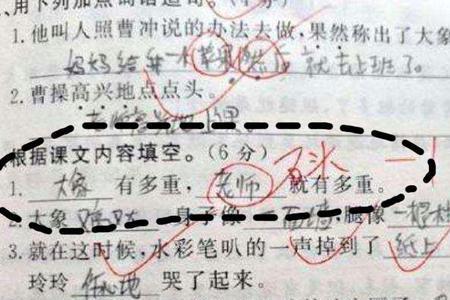 用下列加点词语造句。(
1.他叫人照曹冲说的办法去做,果然称出了大象
妈妈给我一个苹果然后就去上班了。
2.曹操高兴地点点头。
老师高兴地上课。
根据课文内容填空。(6分) 石头 -1
1. 大象 有多重, 老师 就有多重。
2.大象 又高又大 ,身子像 一面墙 ,腿像 一根柱
3.就在这时候,水彩笔叭的一声掉到了 纸上
玲玲 伤心地 哭了起来。